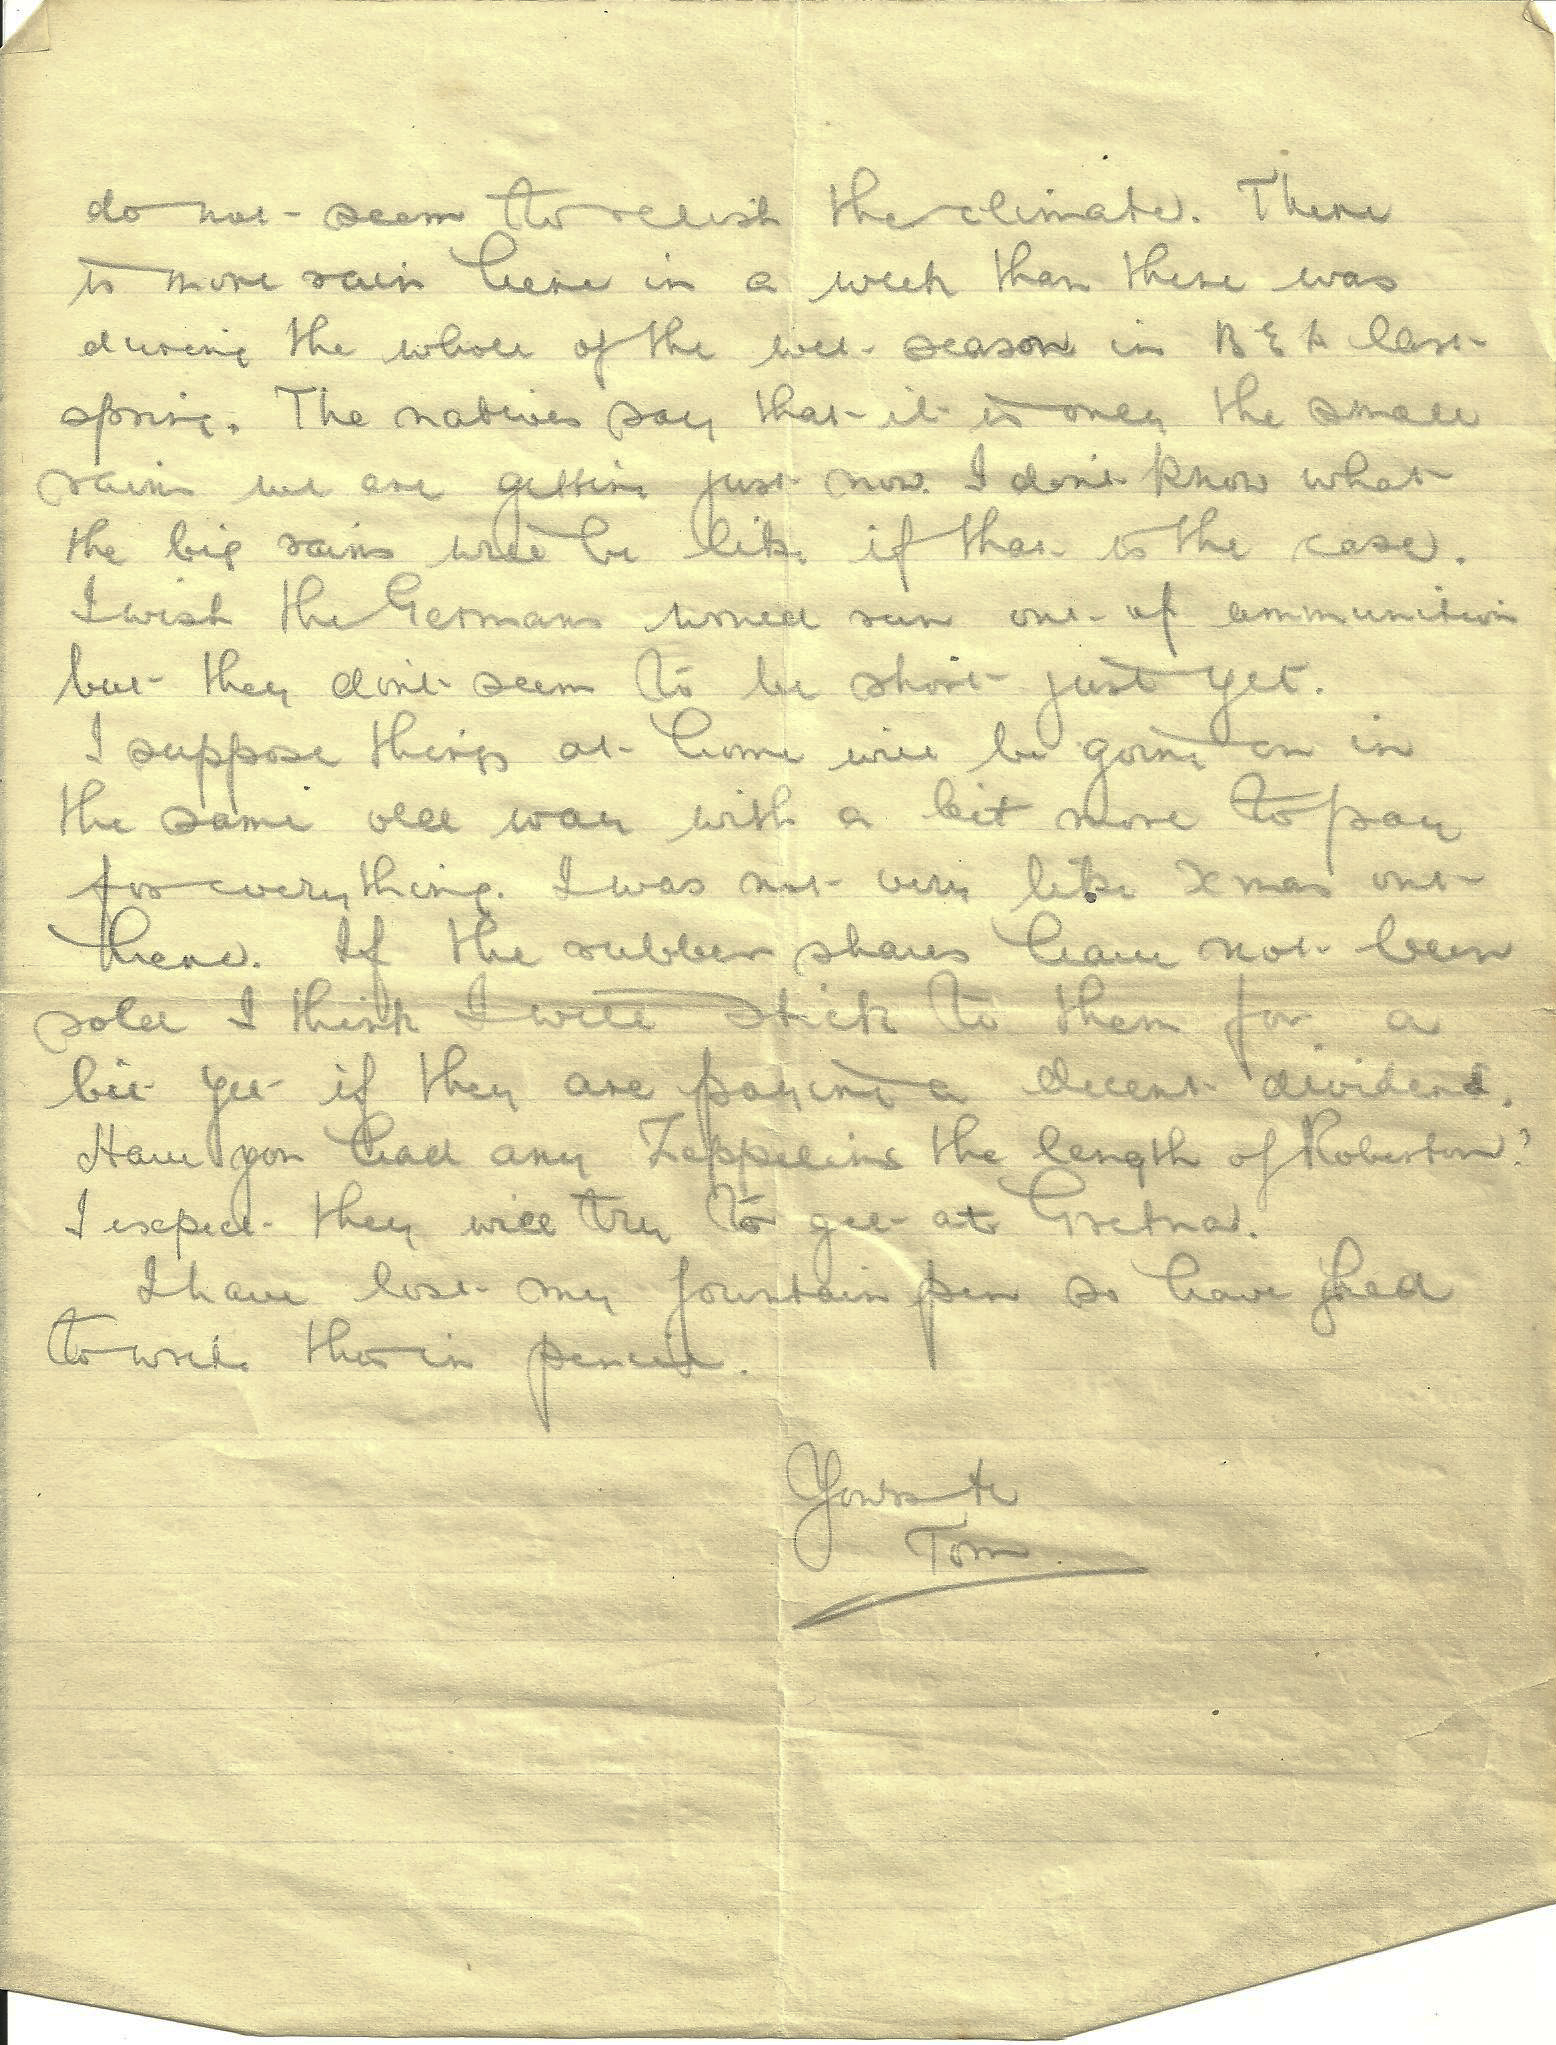 do not seem to relish the climate. There
is more rain here in a week than there was
during the whole of the wet season in B E A last
spring. The natives say that it is only the small
rains we are getting just now. I don't know what
the big rains will be like if that is the case.
I wish the Germans would run out of ammunition
but they don't seem to be short just yet.
I suppose things at home will be going on in
the same old way with a bit more to pay
for everything. I was not very like Xmas out
here. If the rubber shares have not been
sold I think I will stick to them for a
bit yet if they are paying a decent dividend.
Have you had any Zeppelins the length of Roberton?
I expect they will try to get at Gretna.
I have lost my fountain pen so have had
to write this in pencil.
Yours tr
Tom.